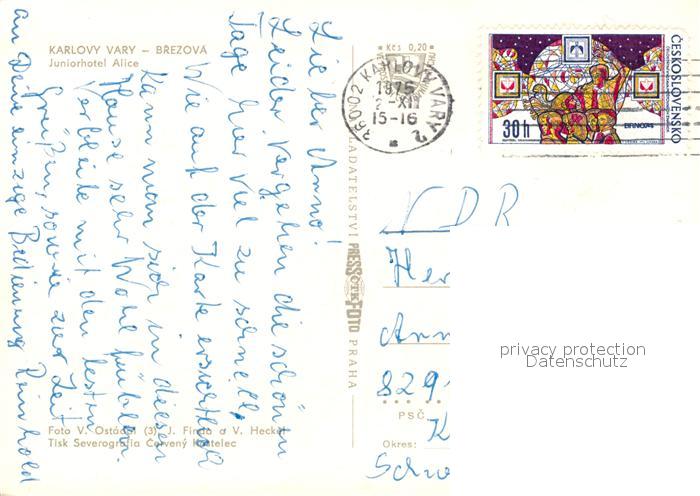 KARLOVY VARY – BŘEZOVÁ
Juniorhotel Alice
Lieber Anno!
Leider vergehen die schönen
Tage hier viel zu schnell.
Wie auf der Karte ersichtlich
kann man sich in diesem
Hause sehr Wohl fühlen.
Verbleibe mit den besten
Grüßen, sowie zur Zeit
an Deine einzige Bedienung Reinhold
Foto V. Ostádal (3), J. Finda a V. Heckel
Tisk Severografia Červený Kostelec
Kčs 0,20
NAKLADATELSTVÍ PRESSFOTO PRAHA
36002 KARLOVY VARY 2
1975
2.-XII
15-16
ČESKOSLOVENSKO
30h
BRNO 74
NDR
Her
Ann
829
PSČ
K
Okres:
Schw
privacy protection
Datenschutz